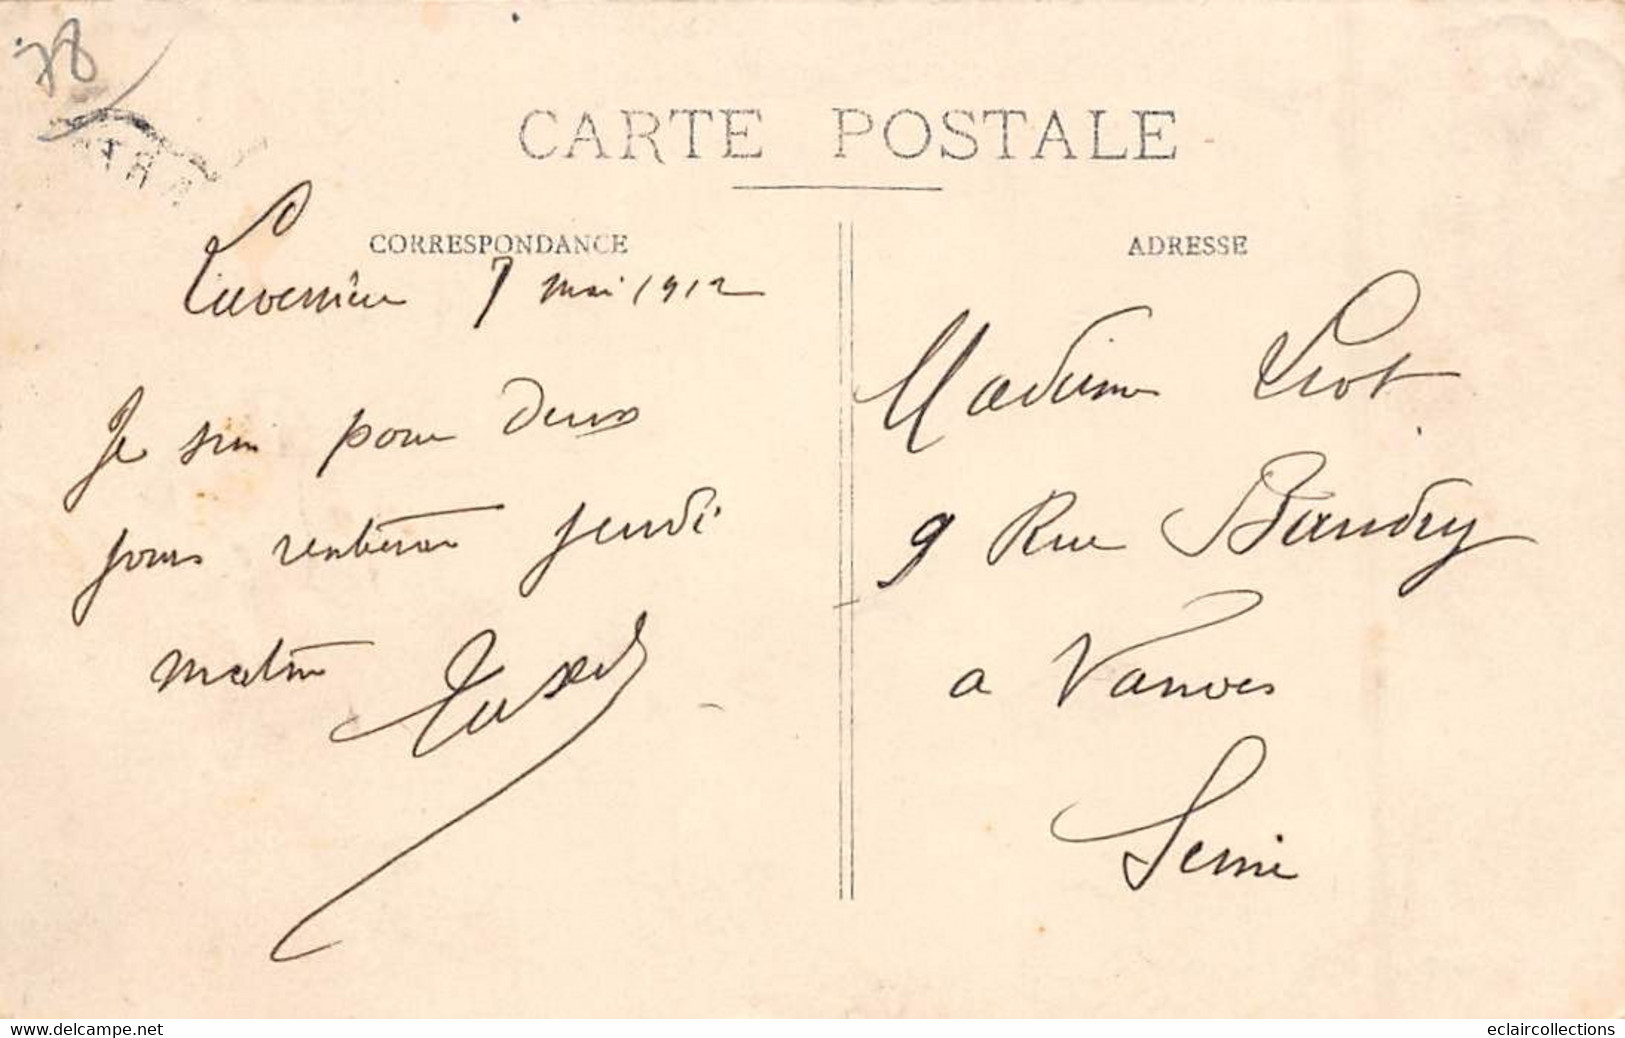 78
CARTE POSTALE
CORRESPONDANCE
7 mai 1912
Je suis pour deux
jours rentrerai jeudi
matin
ADRESSE
Madame Liot
9 Rue Baudry
a Vanves
Seine
www.delcampe.net
eclaircollections